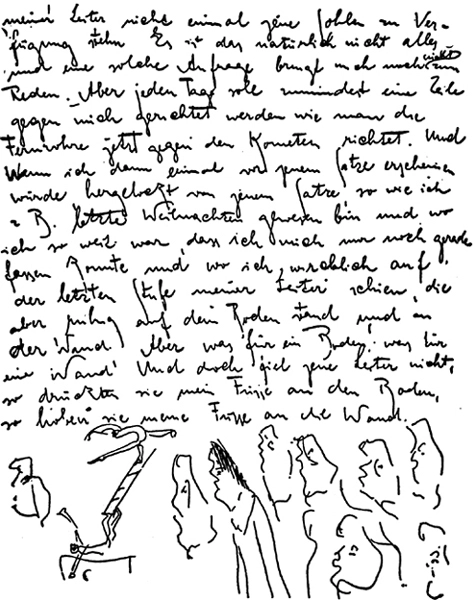 meiner Leiter nicht einmal jene Sohlen zur Ver-
fügung stehn. Es ist das natürlich nicht alles,
und eine solche Anfrage bringt mich noch nicht zum
Reden. Aber jeden Tag soll zumindest eine Zeile
gegen mich gerichtet werden wie man die
Fernrohre jetzt gegen den Kometen richtet. Und
wenn ich dann einmal vor jenem Satze erscheinen
würde hergelockt von jenem Satze so wie ich
z. B. letzte Weihnachten gewesen bin und wo
ich so weit war, dass ich mich nur noch gerade
fassen konnte und wo ich wirklich auf
der letzten Stufe meiner Leiter schien, die
aber ruhig auf dem Boden stand und an
der Wand. Aber was für ein Boden! was für
eine Wand! Und doch fiel jene Leiter nicht,
so drückten sie meine Füsse an den Boden,
so hoben sie meine Füsse an die Wand.